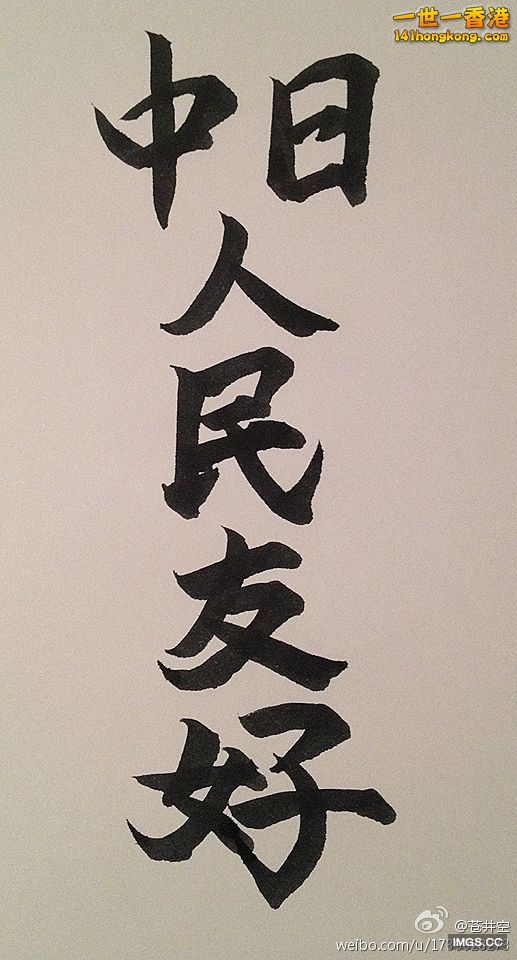 一世一香港
141hongkong.com
中日
人
民
友
好
@苍井空
IMGS.CC